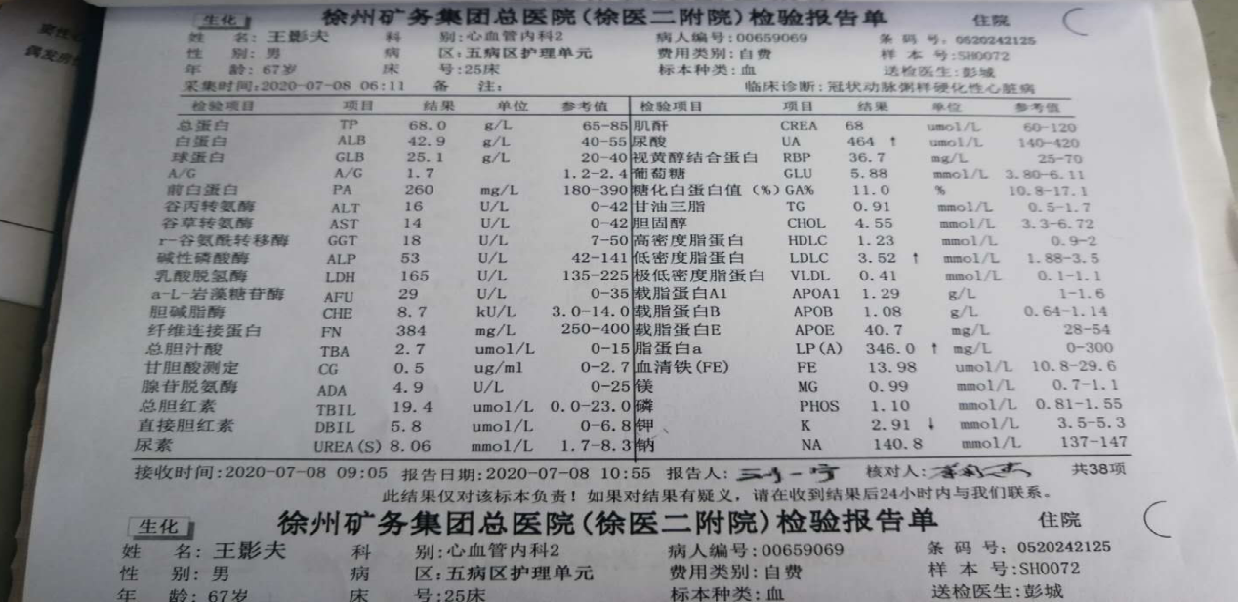 生化 徐州矿务集团总医院(徐医二附院)检验报告单 住院
姓 名: 王影夫 科 别:心血管内科2 病人编号:00659069 条 码 号: 0520242125
性 别: 男 病 区: 五病区护理单元 费用类别: 自费 样 本 号:SH0072
年 龄: 67岁 床 号:25床 标本种类: 血 送检医生: 彭城
采集时间:2020-07-08 06:11 备 注: 临床诊断: 冠状动脉粥样硬化性心脏病
检验项目 项目 结果 单位 参考值 检验项目 项目 结果 单位 参考值
总蛋白 TP 68.0 g/L 65-85 肌酐 CREA 68 umol/L 60-120
白蛋白 ALB 42.9 g/L 40-55 尿酸 UA 464 ↑ umol/L 140-420
球蛋白 GLB 25.1 g/L 20-40 视黄醇结合蛋白 RBP 36.7 mg/L 25-70
A/G A/G 1.7 1.2-2.4 葡萄糖 GLU 5.88 mmol/L 3.80-6.11
前白蛋白 PA 260 mg/L 180-390 糖化白蛋白值 (%) GA% 11.0 % 10.8-17.1
谷丙转氨酶 ALT 16 U/L 0-42 甘油三脂 TG 0.91 mmol/L 0.5-1.7
谷草转氨酶 AST 14 U/L 0-42 胆固醇 CHOL 4.55 mmol/L 3.3-6.72
r-谷氨酰转移酶 GGT 18 U/L 7-50 高密度脂蛋白 HDLC 1.23 mmol/L 0.9-2
碱性磷酸酶 ALP 53 U/L 42-141 低密度脂蛋白 LDLC 3.52 ↑ mmol/L 1.88-3.5
乳酸脱氢酶 LDH 165 U/L 135-225 极低密度脂蛋白 VLDL 0.41 mmol/L 0.1-1.1
a-L-岩藻糖苷酶 AFU 29 U/L 0-35 载脂蛋白A1 APOA1 1.29 g/L 1-1.6
胆碱脂酶 CHE 8.7 kU/L 3.0-14.0 载脂蛋白B APOB 1.08 g/L 0.64-1.14
纤维连接蛋白 FN 384 mg/L 250-400 载脂蛋白E APOE 40.7 mg/L 28-54
总胆汁酸 TBA 2.7 umol/L 0-15 脂蛋白a LP(A) 346.0 ↑ mg/L 0-300
甘胆酸测定 CG 0.5 ug/ml 0-2.7 血清铁(FE) FE 13.98 umol/L 10.8-29.6
腺苷脱氨酶 ADA 4.9 U/L 0-25 镁 MG 0.99 mmol/L 0.7-1.1
总胆红素 TBIL 19.4 umol/L 0.0-23.0 磷 PHOS 1.10 mmol/L 0.81-1.55
直接胆红素 DBIL 5.8 umol/L 0-6.8 钾 K 2.91 ↓ mmol/L 3.5-5.3
尿素 UREA(S) 8.06 mmol/L 1.7-8.3 钠 NA 140.8 mmol/L 137-147
接收时间:2020-07-08 09:05 报告日期:2020-07-08 10:55 报告人: 核对人: 共38项
此结果仅对该标本负责! 如果对结果有疑义, 请在收到结果后24小时内与我们联系。
生化 徐州矿务集团总医院(徐医二附院)检验报告单 住院
姓 名: 王影夫 科 别:心血管内科2 病人编号:00659069 条 码 号: 0520242125
性 别: 男 病 区: 五病区护理单元 费用类别: 自费 样 本 号:SH0072
年 龄: 67岁 床 号:25床 标本种类: 血 送检医生: 彭城